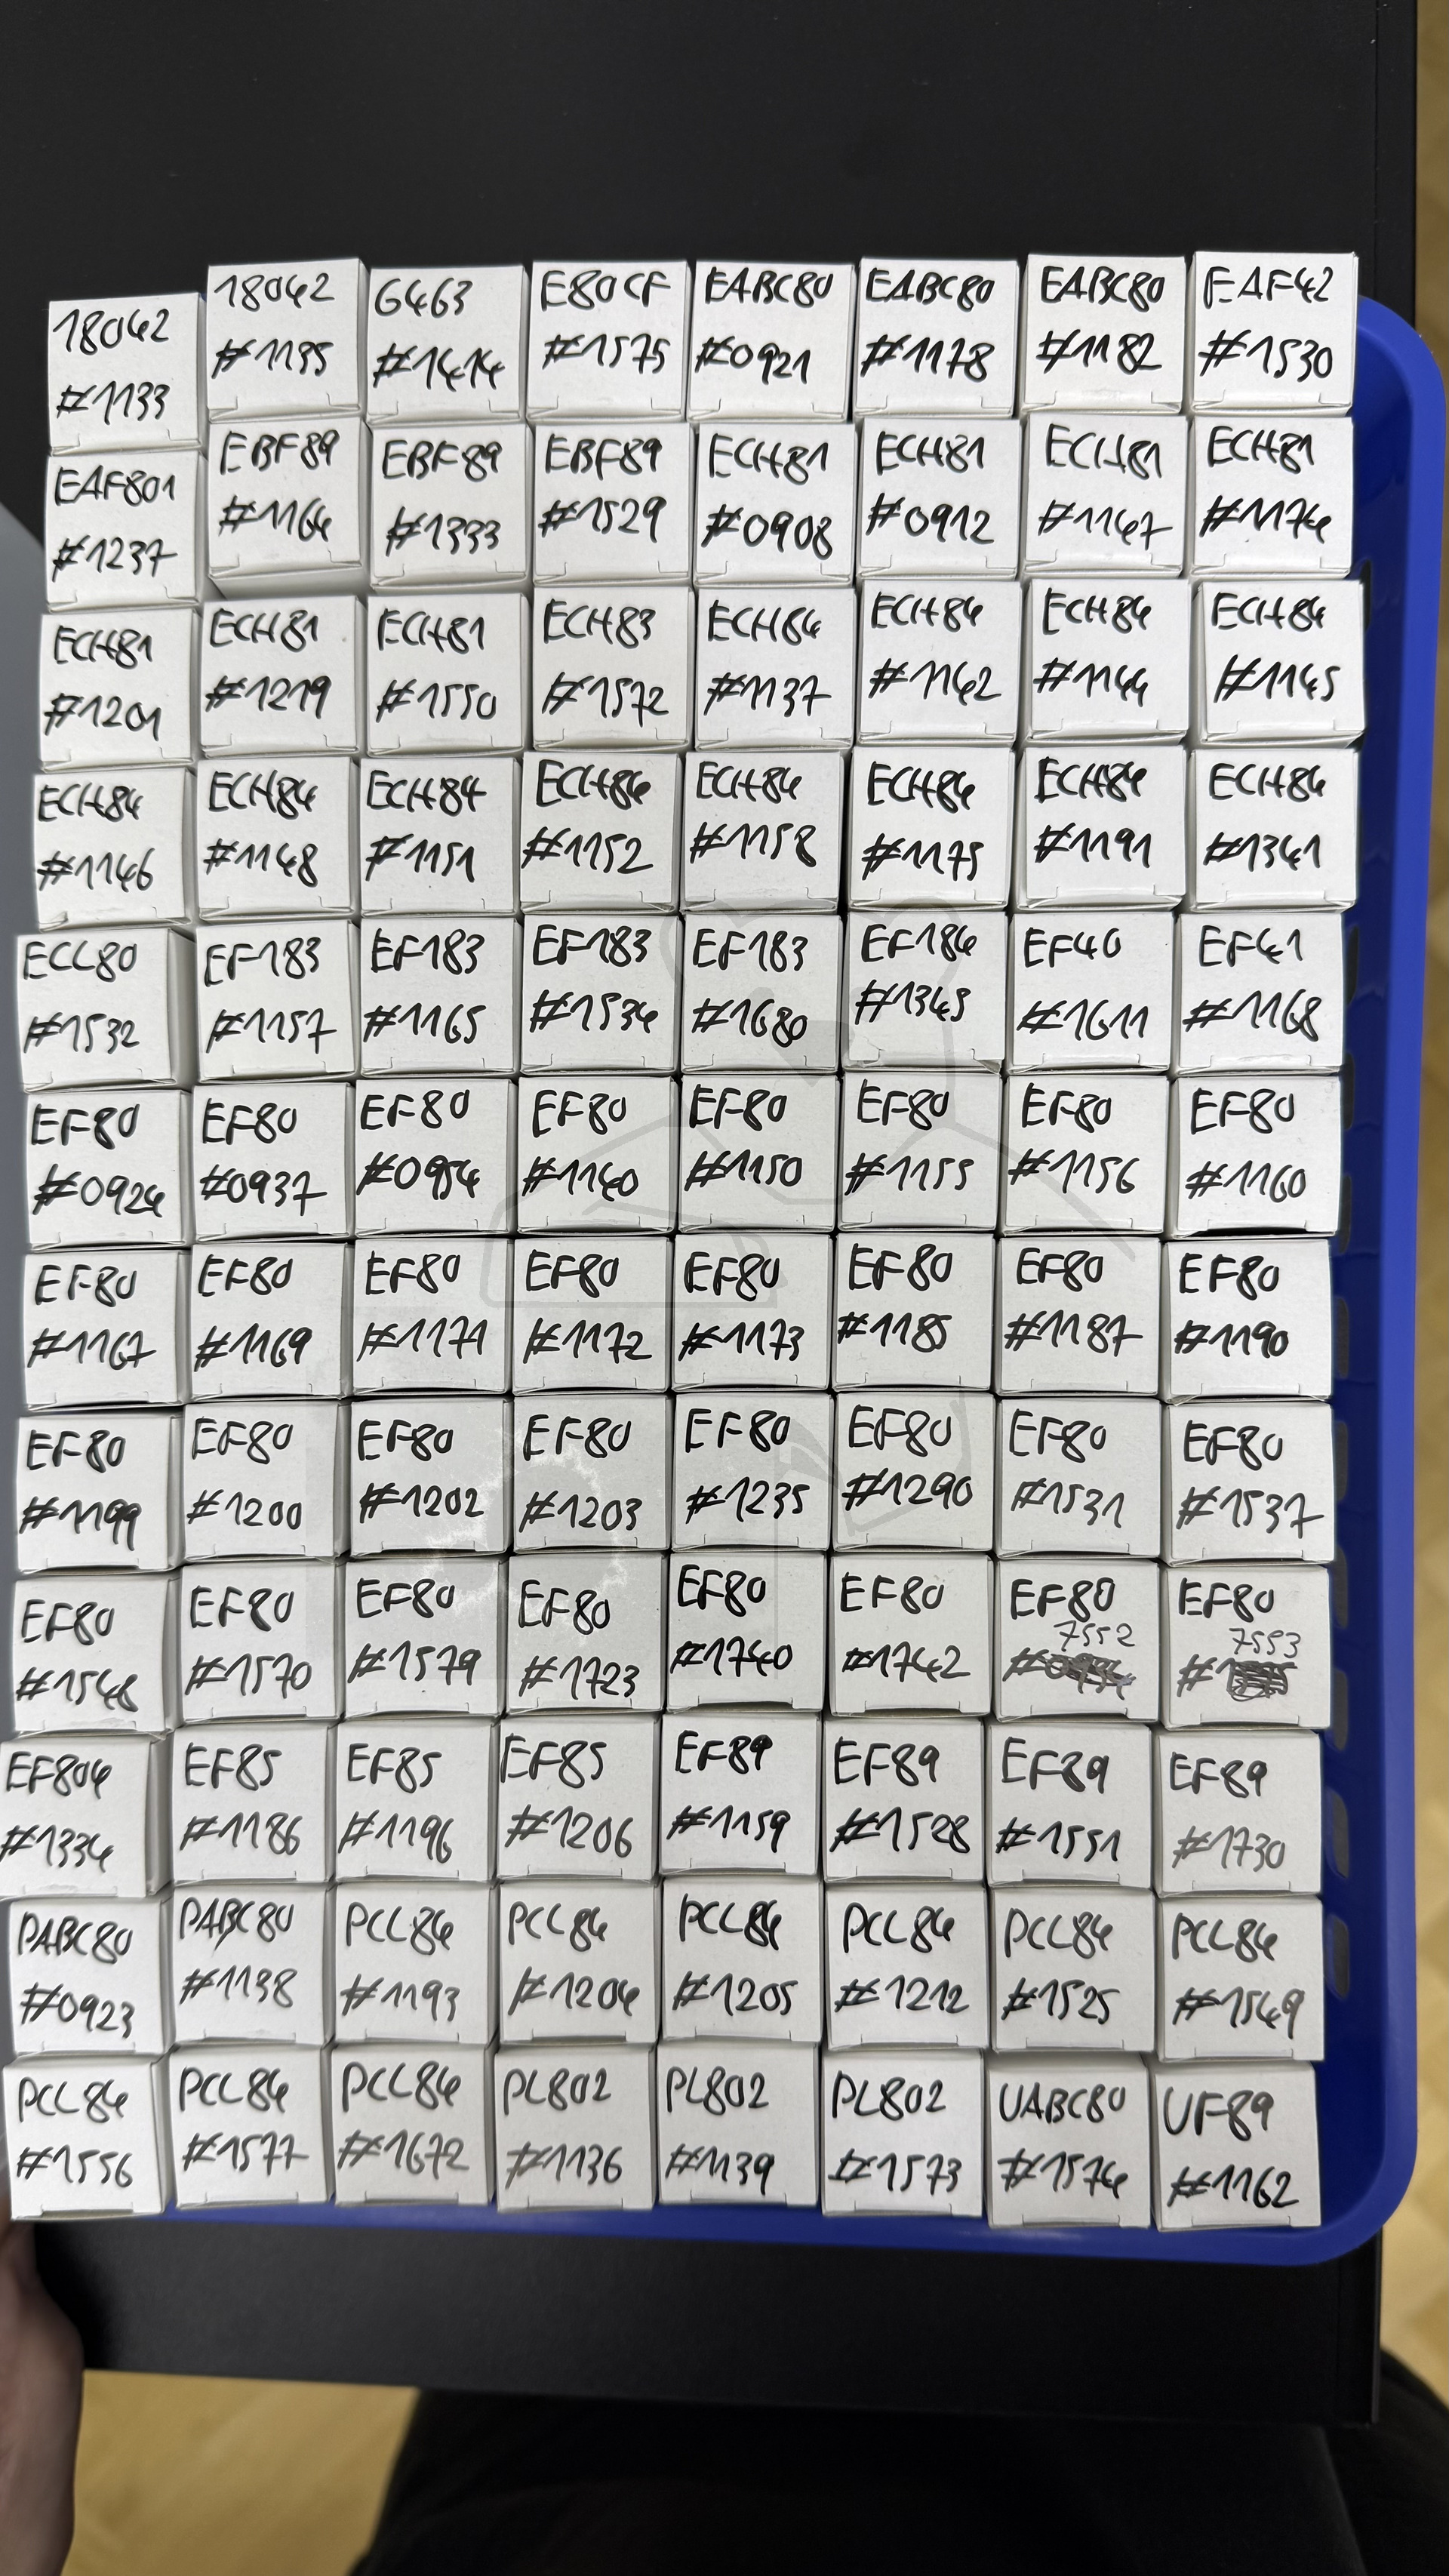 18042
#1133
18042
#1135
6463
#1414
E80CF
#1575
EABC80
#0921
EABC80
#1178
EABC80
#1182
EAF42
#1530
EAF801
#1237
EBF89
#1164
EBF89
#1333
EBF89
#1529
ECH81
#0908
ECH81
#0912
ECH81
#1147
ECH81
#1174
ECH81
#1201
ECH81
#1219
ECH81
#1550
ECH83
#1572
ECH84
#1137
ECH84
#1142
ECH84
#1144
ECH84
#1145
ECH84
#1146
ECH84
#1148
ECH84
#1151
ECH84
#1152
ECH84
#1158
ECH84
#1175
ECH84
#1191
ECH84
#1341
ECL80
#1532
EF183
#1157
EF183
#1165
EF183
#1534
EF183
#1680
EF184
#1343
EF40
#1611
EF41
#1168
EF80
#0924
EF80
#0937
EF80
#0954
EF80
#1140
EF80
#1150
EF80
#1155
EF80
#1156
EF80
#1160
EF80
#1167
EF80
#1169
EF80
#1171
EF80
#1172
EF80
#1173
EF80
#1185
EF80
#1187
EF80
#1190
EF80
#1199
EF80
#1200
EF80
#1202
EF80
#1203
EF80
#1235
EF80
#1290
EF80
#1531
EF80
#1537
EF80
#1548
EF80
#1570
EF80
#1579
EF80
#1723
EF80
#1740
EF80
#1742
EF80
7552
EF80
7553
EF804
#1334
EF85
#1186
EF85
#1196
EF85
#1206
EF89
#1159
EF89
#1528
EF89
#1551
EF89
#1730
PABC80
#0923
PABC80
#1138
PCL84
#1193
PCL84
#1204
PCL84
#1205
PCL84
#1212
PCL84
#1525
PCL84
#1549
PCL84
#1556
PCL84
#1577
PCL84
#1672
PL802
#1136
PL802
#1139
PL802
#1573
UABC80
#1574
UF89
#1162